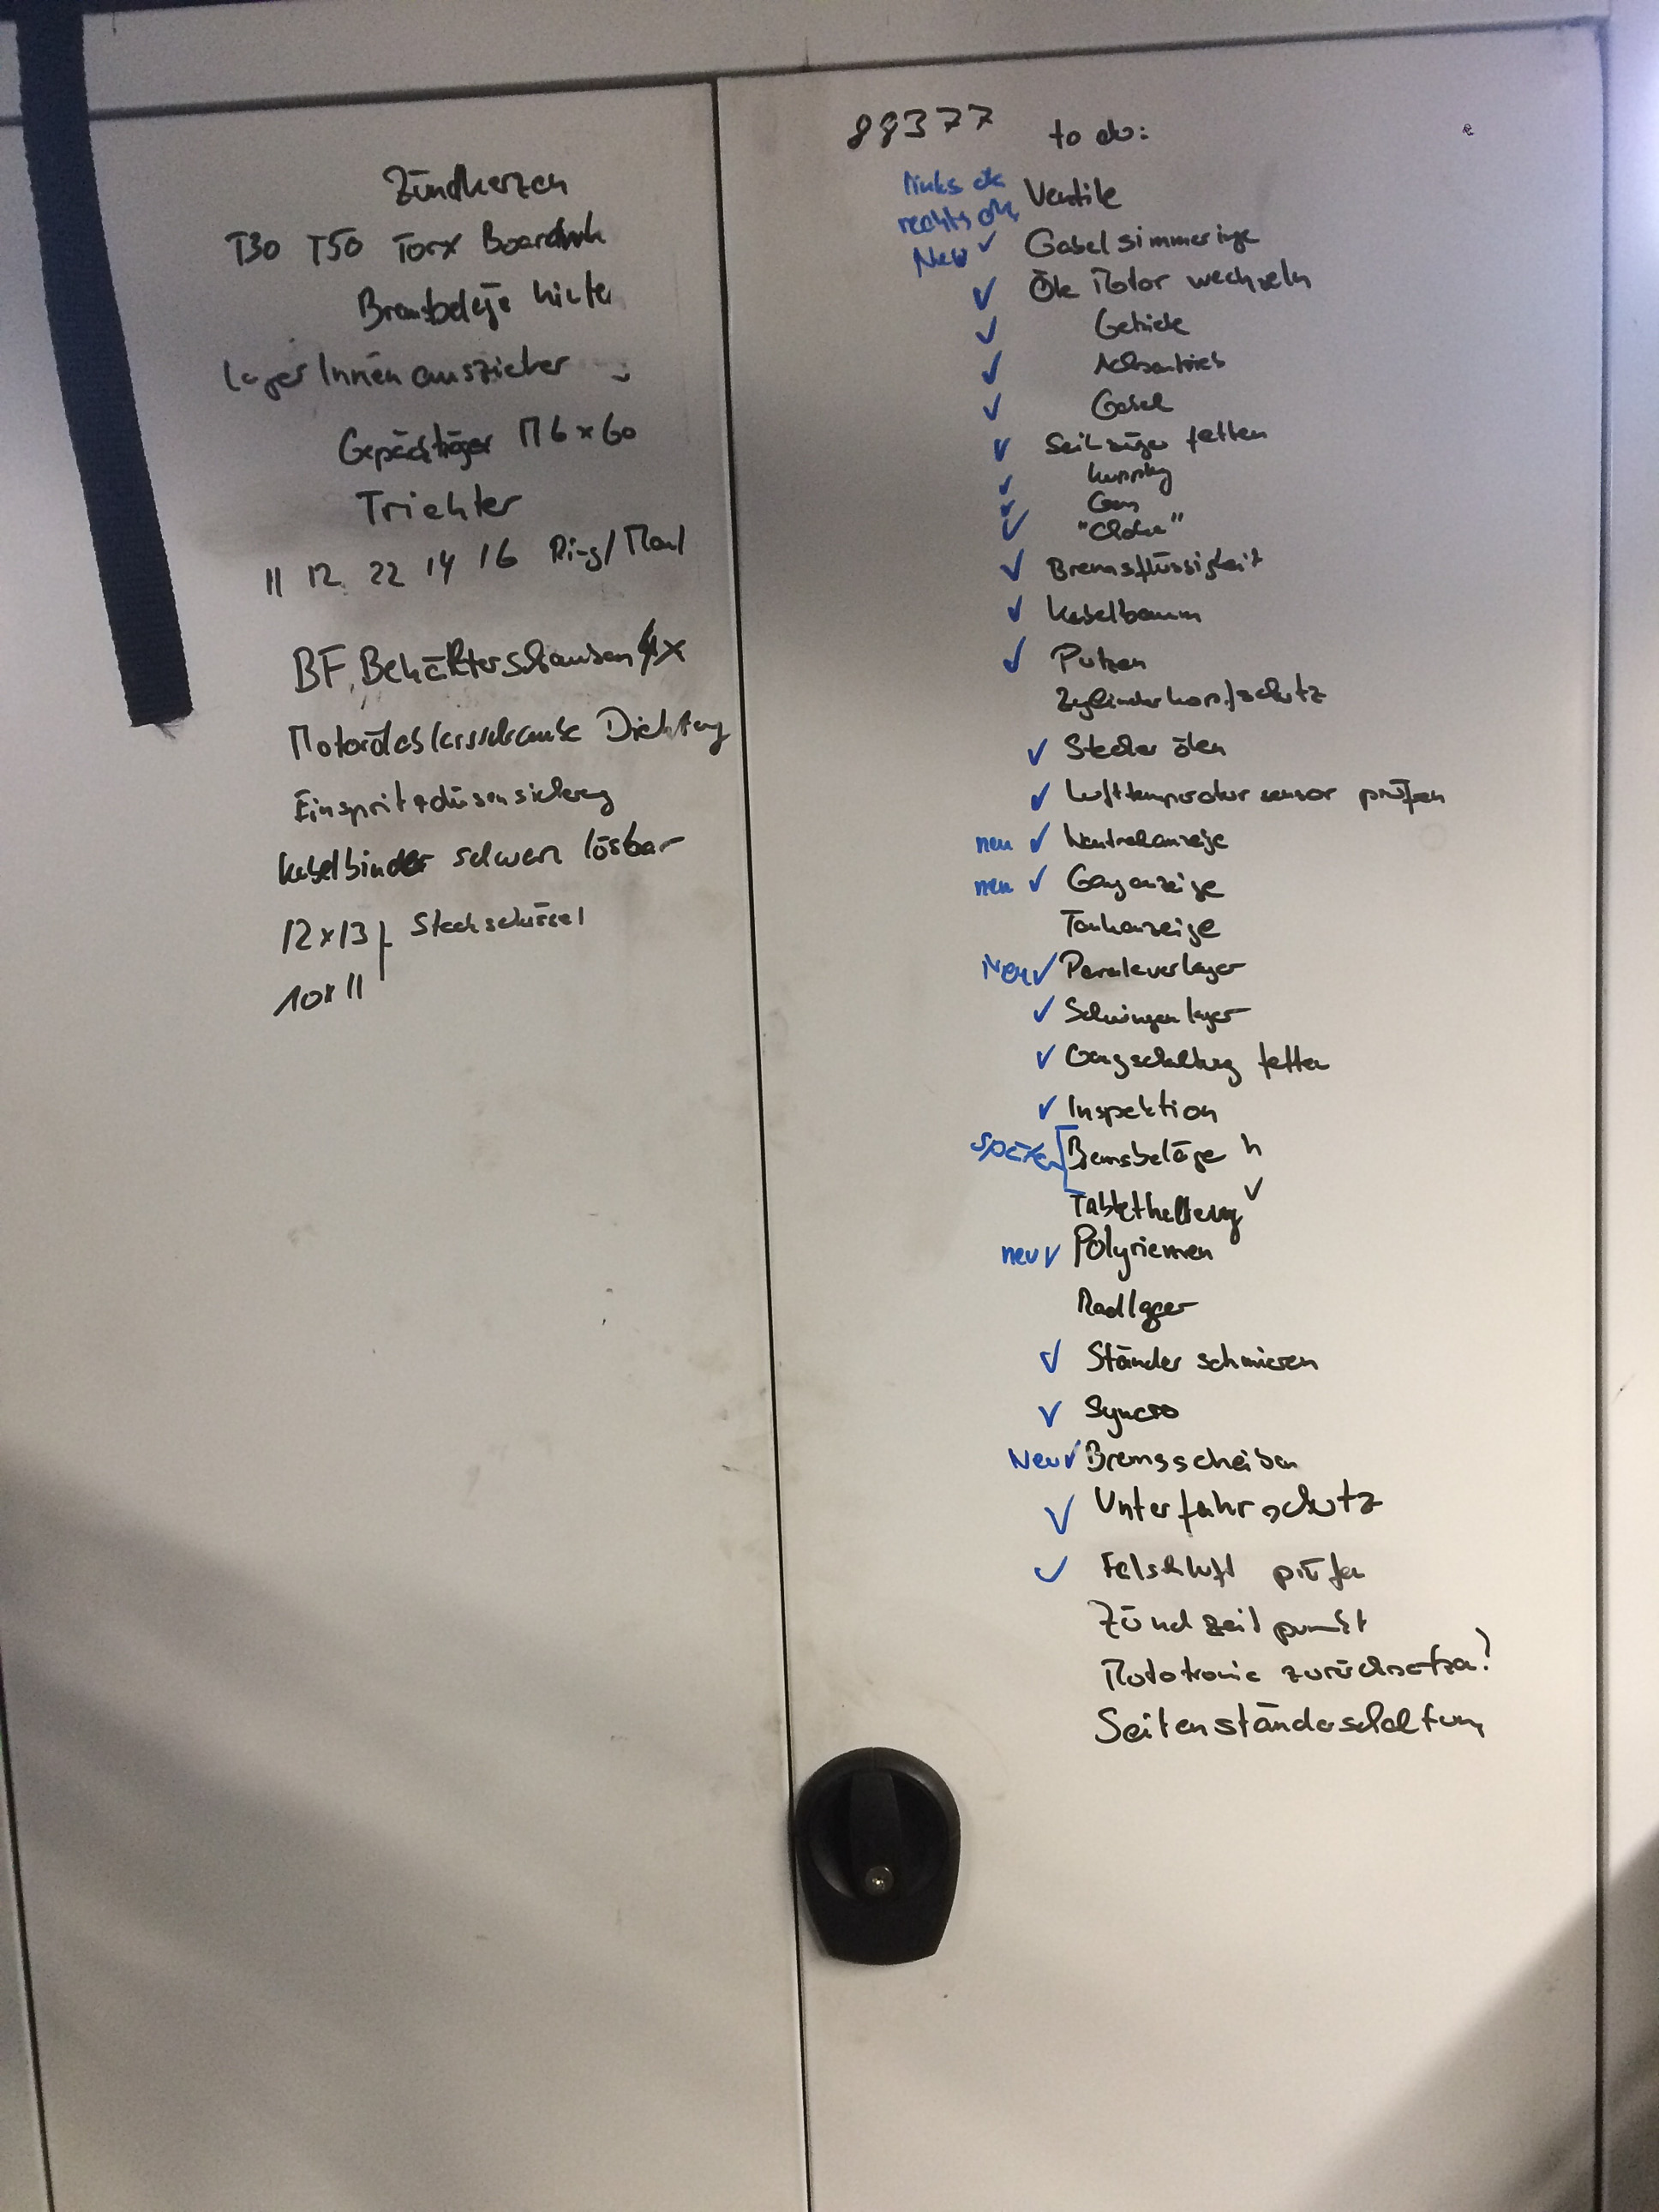 Zündkerzen
T30 T50 Torx
Bremsbeläge hinten
Lager Innenauszieher
Gepäckträger M6x60
Trichter
11 12 22 14 16 Ring/Maul
BF Behälterschrauben 4x
Motorölablassschraube Dichtung
Einspritzdüsensicherung
Kabelbinder schwarz lösbar
12x13 Steckschlüssel
10x11
88377 to do:
links ok Ventile
rechts ok
Neu ✓ Gabelsimmeringe
✓ Öle Motor wechseln
✓ Getriebe
✓ Achsantrieb
✓ Gabel
✓ Seilzüge fetten
✓ Kupplung
✓ Gas
✓ "Choke"
✓ Bremsflüssigkeit
✓ Kabelbaum
✓ Putzen
Zylinderkopfschutz
✓ Stecker ölen
✓ Lufttemperatursensor prüfen
neu ✓ Neutralanzeige
neu ✓ Ganganzeige
Tankanzeige
Neu ✓ Paraleverlager
✓ Schwingenlager
✓ Gangschaltung fetten
✓ Inspektion
später [ Bremsbeläge h
Tablethalterung ✓
neu ✓ Polyriemen
Radlager
✓ Ständer schmieren
✓ Syncro
Neu ✓ Bremsscheiben
✓ Unterfahrschutz
✓ Falschluft prüfen
Zündzeitpunkt
Mototronic zurücksetzen?
Seitenständerschaltung